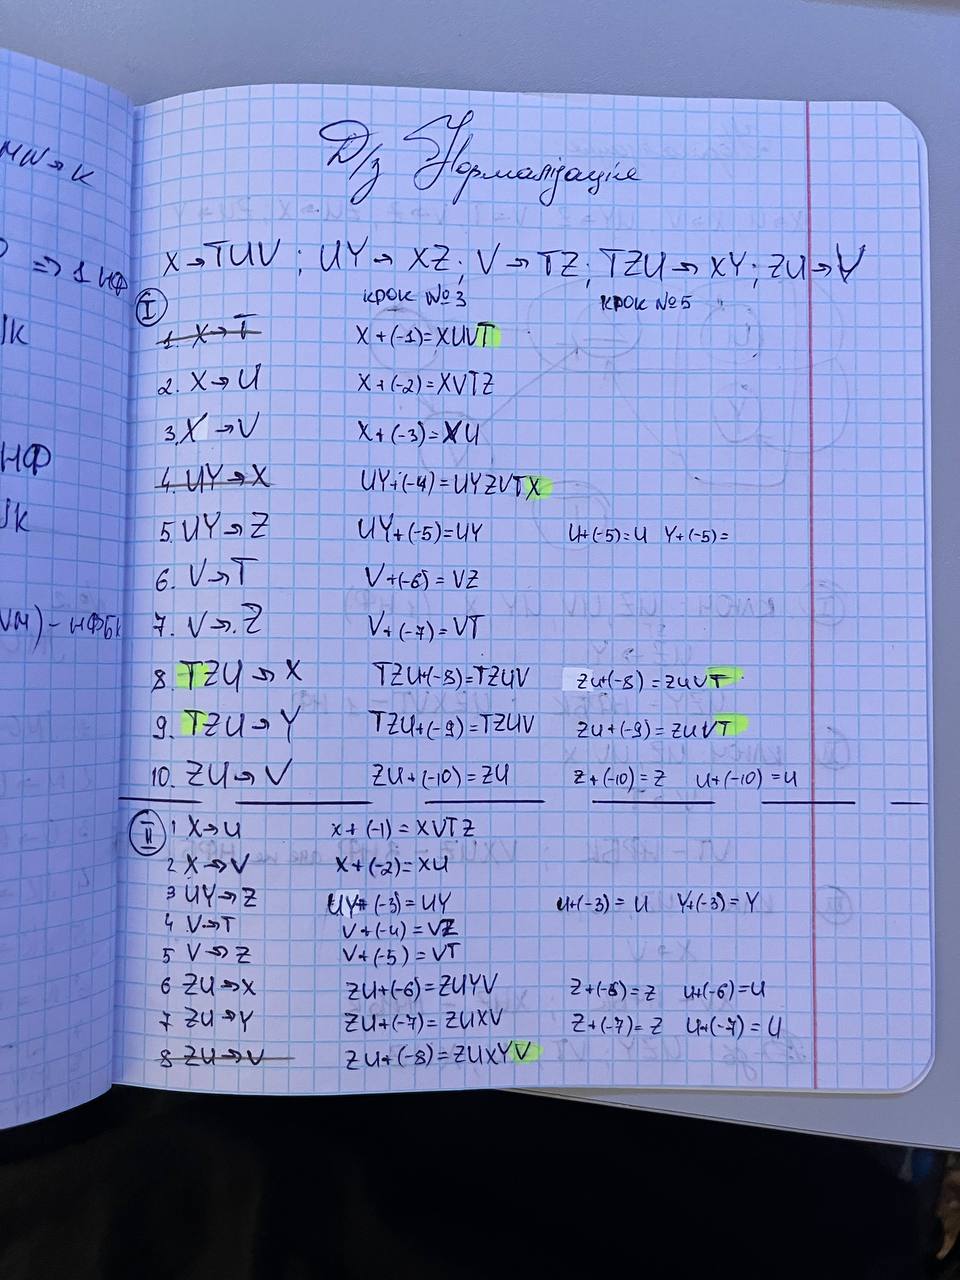 MN→K
⇒ 1НФ
НФ
VM) - НФБК
Д/з Нормалізація
X→TUV ; UY→XZ; V→TZ; TZU→XY; ZU→V
крок №3 крок №5
I
1. X→T X+(-1)=XUVT
2. X→U X+(-2)=XVTZ
3. X→V X+(-3)=XU
4. UY→X UY+(-4)=UYZVTX
5. UY→Z UY+(-5)=UY U+(-5)=U Y+(-5)=
6. V→T V+(-6)=VZ
7. V→Z V+(-7)=VT
8. TZU→X TZU+(-8)=TZUV ZU+(-8)=ZUVT
9. TZU→Y TZU+(-9)=TZUV ZU+(-9)=ZUVT
10. ZU→V ZU+(-10)=ZU Z+(-10)=Z U+(-10)=U
II
1 X→U X+(-1)=XVTZ
2 X→V X+(-2)=XU
3 UY→Z UY+(-3)=UY U+(-3)=U Y+(-3)=Y
4 V→T V+(-4)=VZ
5 V→Z V+(-5)=VT
6 ZU→X ZU+(-6)=ZUYV Z+(-6)=Z U+(-6)=U
7 ZU→Y ZU+(-7)=ZUXV Z+(-7)=Z U+(-7)=U
8 ZU→V ZU+(-8)=ZUXYV